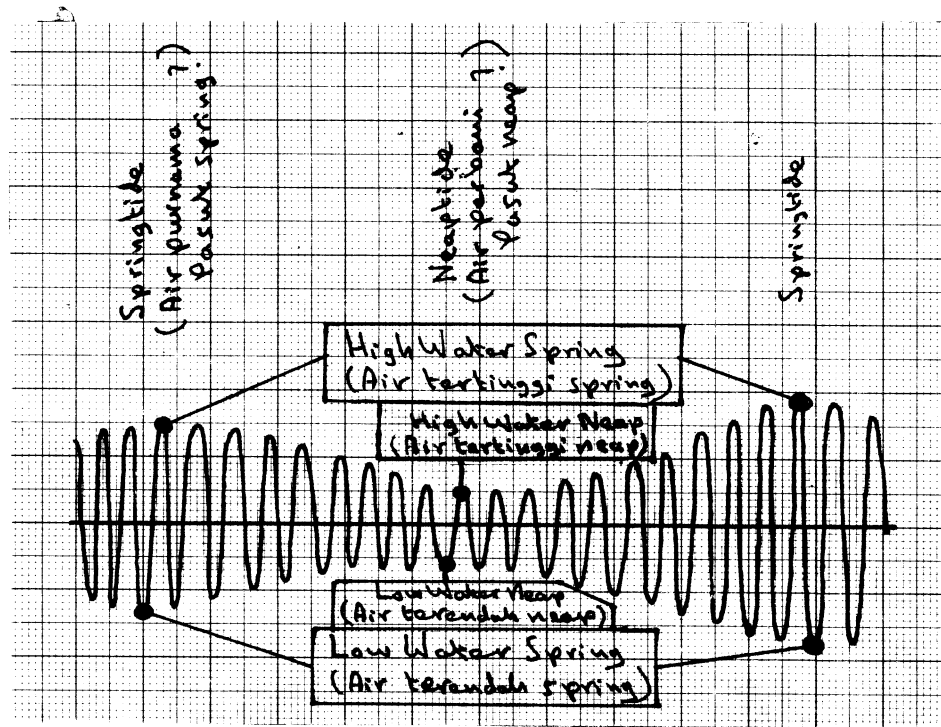 Springtide
(Air purnama ?)
Pasut spring.
Neaptide
(Air perbani ?)
Pasut neap.
Springtide
High Water Spring
(Air tertinggi spring)
High Water Neap
(Air tertinggi neap)
Low Water Neap
(Air terendah neap)
Low Water Spring
(Air terendah spring)